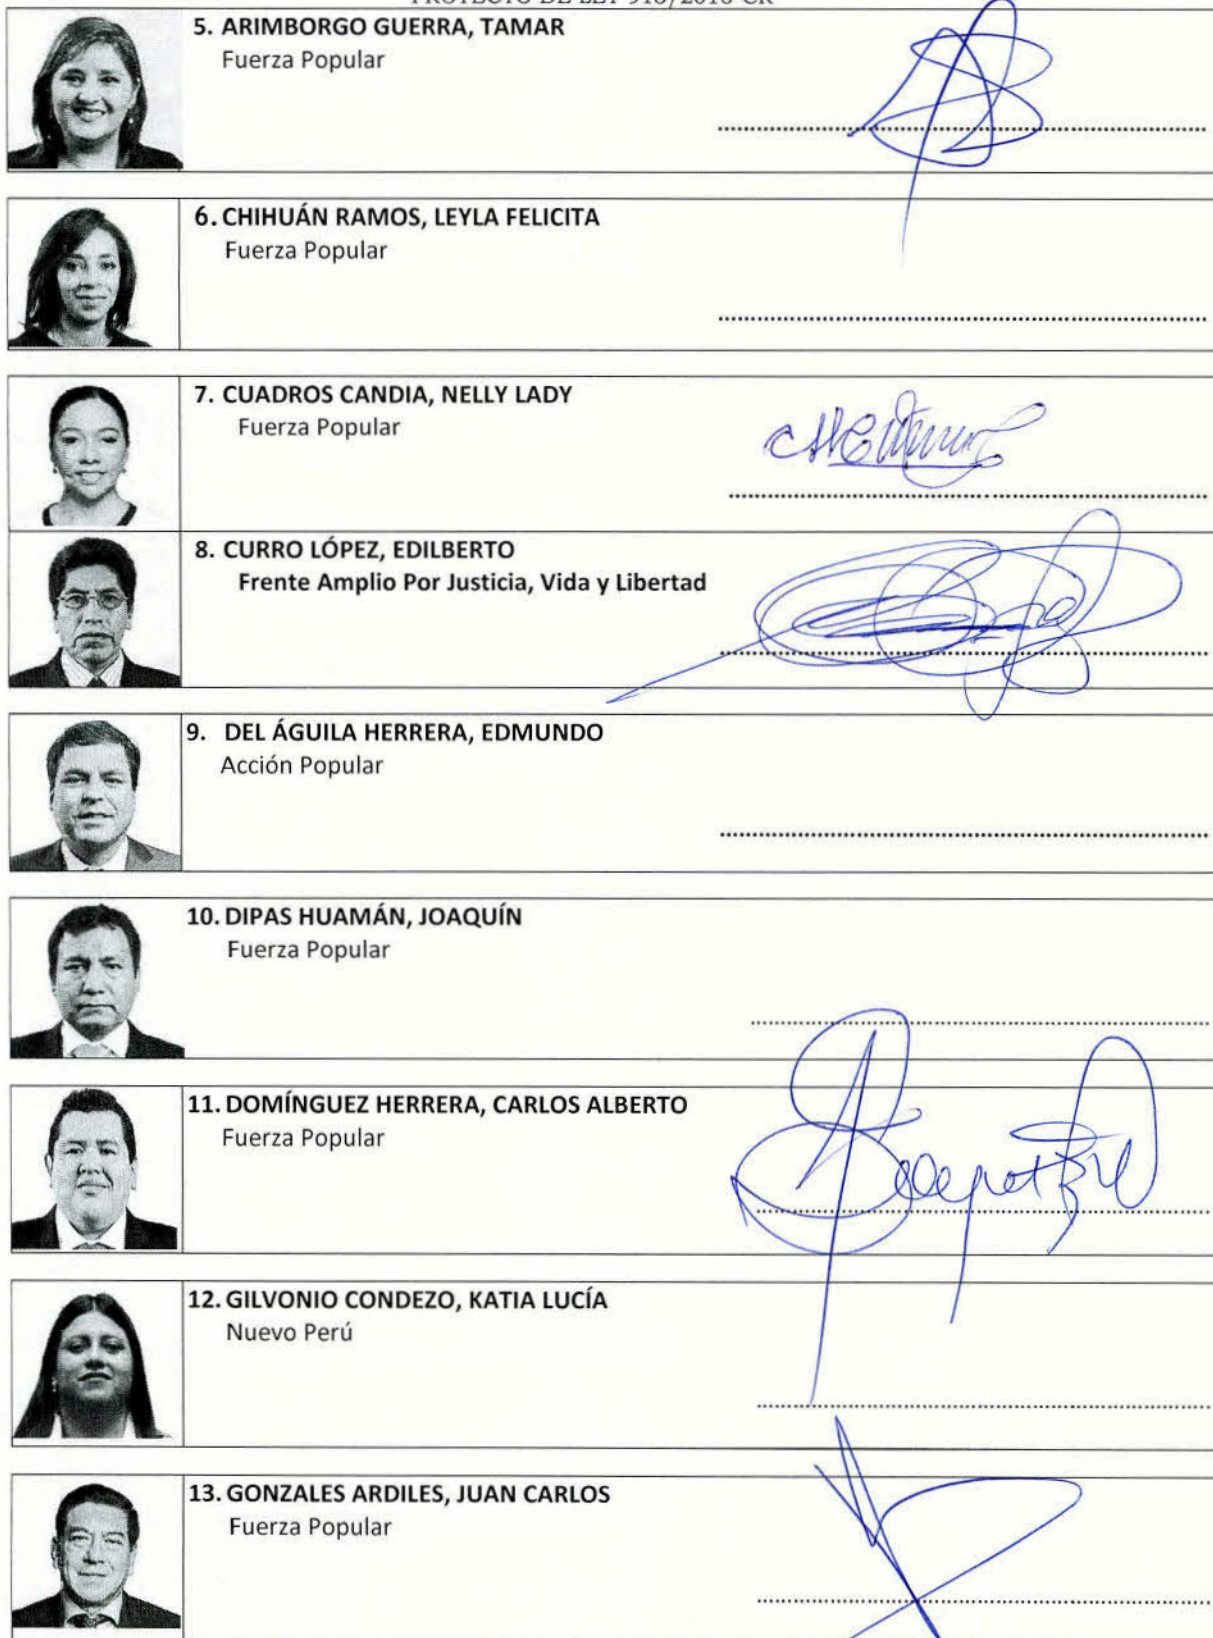 5. ARIMBORGO GUERRA, TAMAR
Fuerza Popular
6. CHIHUÁN RAMOS, LEYLA FELICITA
Fuerza Popular
7. CUADROS CANDIA, NELLY LADY
Fuerza Popular
8. CURRO LÓPEZ, EDILBERTO
Frente Amplio Por Justicia, Vida y Libertad
9. DEL ÁGUILA HERRERA, EDMUNDO
Acción Popular
10. DIPAS HUAMÁN, JOAQUÍN
Fuerza Popular
11. DOMÍNGUEZ HERRERA, CARLOS ALBERTO
Fuerza Popular
12. GILVONIO CONDEZO, KATIA LUCÍA
Nuevo Perú
13. GONZALES ARDILES, JUAN CARLOS
Fuerza Popular